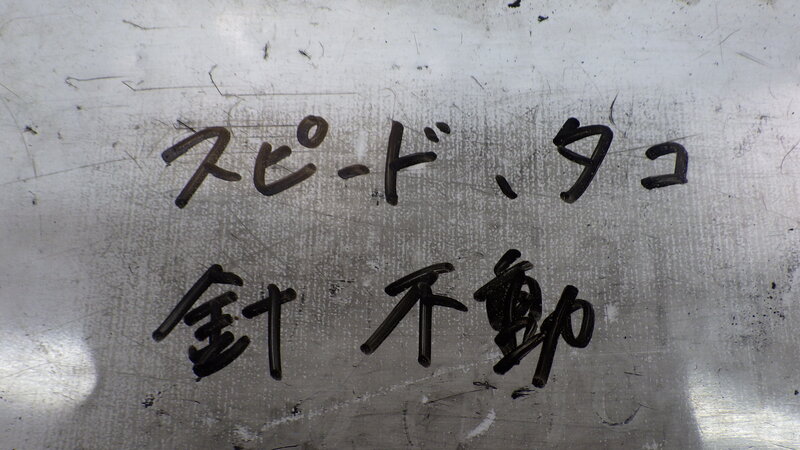 スピード、タコ
針 不動